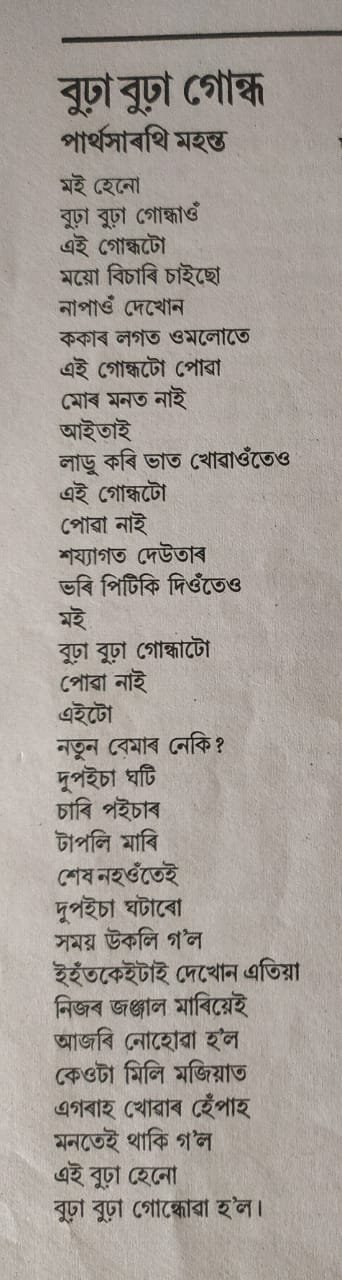 বুঢ়া বুঢ়া গোন্ধ
পাৰ্থসাৰথি মহন্ত
মই হেনো
বুঢ়া বুঢ়া গোন্ধাওঁ
এই গোন্ধটো
ময়ো বিচাৰি চাইছো
নাপাওঁ দেখোন
ককাৰ লগত ওমলোতে
এই গোন্ধটো পোৱা
মোৰ মনত নাই
আইতাই
লাডু কৰি ভাত খোৱাওঁতেও
এই গোন্ধটো
পোৱা নাই
শয্যাগত দেউতাৰ
ভৰি পিটিকি দিওঁতেও
মই
বুঢ়া বুঢ়া গোন্ধাটো
পোৱা নাই
এইটো
নতুন বেমাৰ নেকি?
দুপইচা ঘটি
চাৰি পইচাৰ
টাপলি মাৰি
শেষ নহওঁতেই
দুপইচা ঘটাৰো
সময় উকলি গ'ল
ইহঁতকেইটাই দেখোন এতিয়া
নিজৰ জঞ্জাল মাৰিয়েই
আজৰি নোহোৱা হ'ল
কেওটা মিলি মজিয়াত
এগৰাহ খোৱাৰ হেঁপাহ
মনতেই থাকি গ'ল
এই বুঢ়া হেনো
বুঢ়া বুঢ়া গোন্ধোৱা হ'ল।